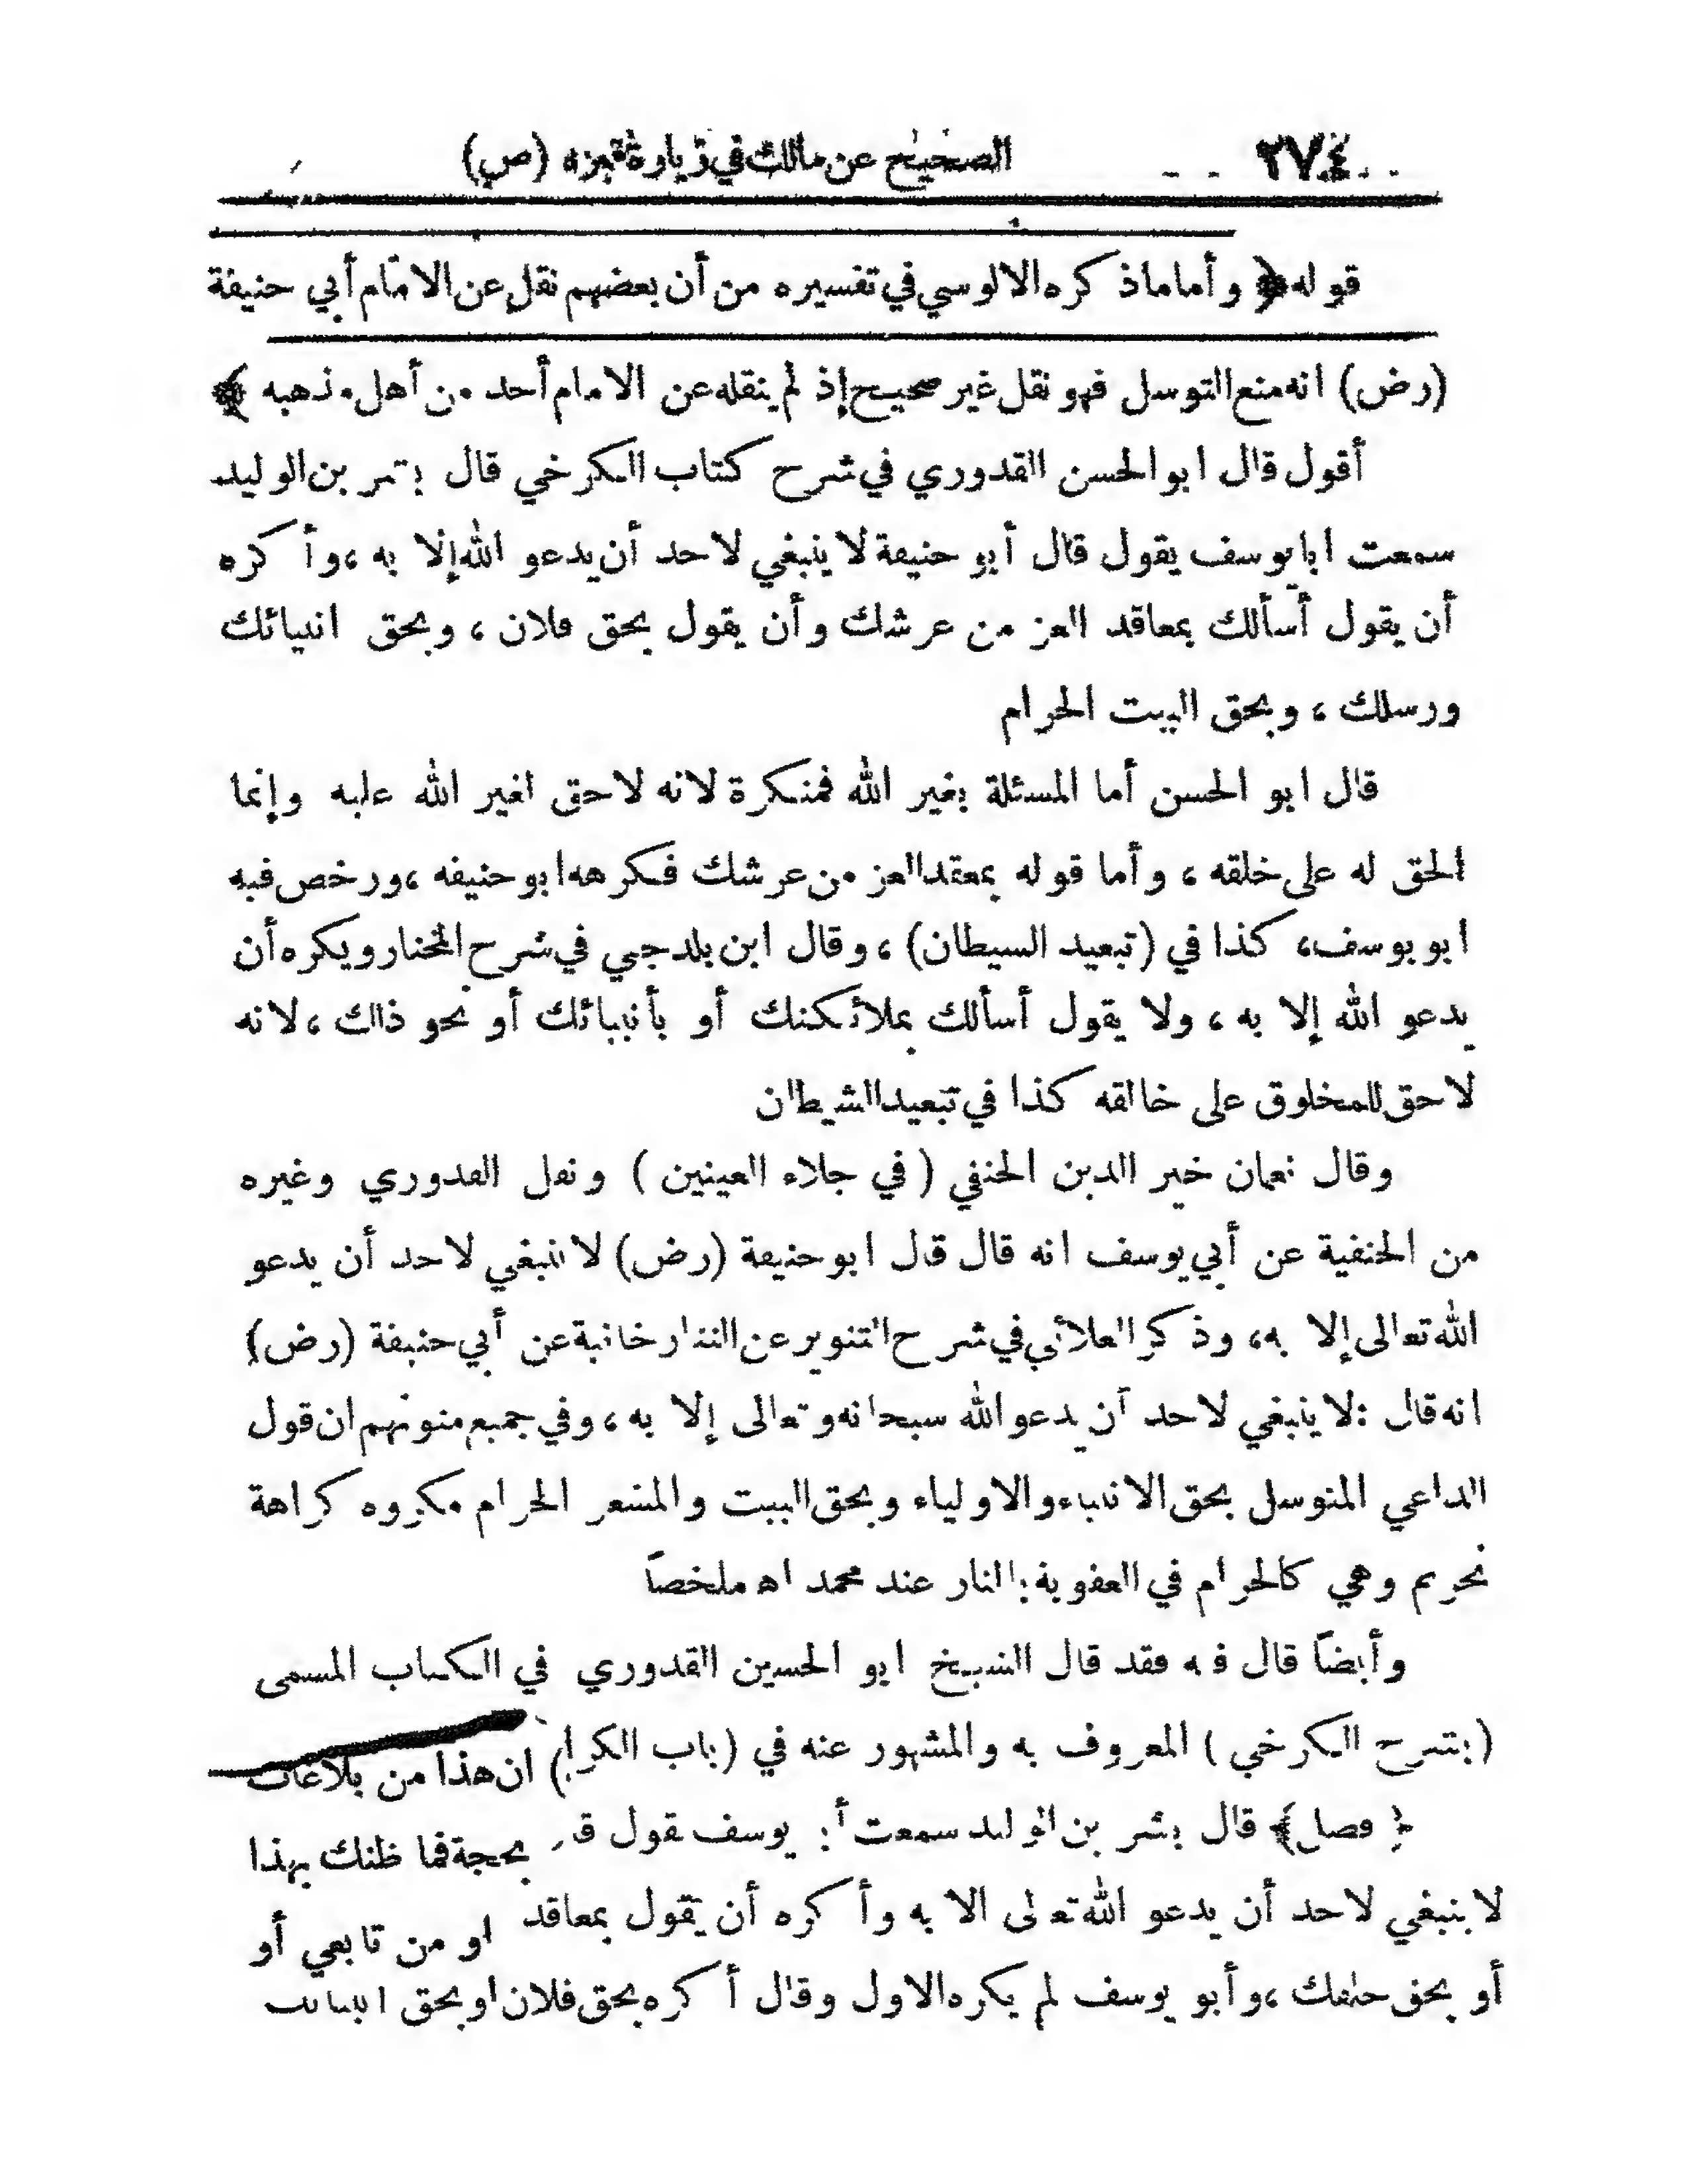 ٢٧٤ الصحيح عن مالك في زيارة قبره (ص)
قوله ﴿ وأما ما ذكره الالوسي في تفسيره من أن بعضهم نقل عن الامام أبي حنيفة
(رض) انه منع التوسل فهو نقل غير صحيح إذ لم ينقله عن الامام أحد من أهل مذهبه ﴾
أقول قال ابو الحسن القدوري في شرح كتاب الكرخي قال بشر بن الوليد
سمعت ابا يوسف يقول قال أبو حنيفة لا ينبغي لاحد أن يدعو الله إلا به ، وأكره
أن يقول أسألك بمعاقد العز من عرشك وأن يقول بحق فلان ، وبحق انبيائك
ورسلك ، وبحق البيت الحرام
قال ابو الحسن أما المسئلة بغير الله فمنكرة لانه لا حق لغير الله عليه وإنما
الحق له على خلقه ، وأما قوله بمعقد العز من عرشك فكرهه ابو حنيفه ، ورخص فيه
ابو يوسف ، كذا في (تبعيد الشيطان) ، وقال ابن بلدجي في شرح المختار ويكره أن
يدعو الله إلا به ، ولا يقول أسألك بملائكتك أو بأنبيائك أو نحو ذلك ، لانه
لا حق للمخلوق على خالقه كذا في تبعيد الشيطان
وقال نعمان خير الدين الحنفي ( في جلاء العينين ) ونقل القدوري وغيره
من الحنفية عن أبي يوسف انه قال قال ابو حنيفة (رض) لا ينبغي لاحد أن يدعو
الله تعالى إلا به ، وذكر العلائي في شرح التنوير عن التتارخانية عن أبي حنيفة (رض)
انه قال : لا ينبغي لاحد أن يدعو الله سبحانه وتعالى إلا به ، وفي جميع متونهم ان قول
الداعي المتوسل بحق الانبياء والاولياء وبحق البيت والمشعر الحرام مكروه كراهة
تحريم وهي كالحرام في العقوبة بالنار عند محمد اه ملخصاً
وأيضاً قال فيه فقد قال الشيخ ابو الحسين القدوري في الكتاب المسمى
(بشرح الكرخي ) المعروف به والمشهور عنه في (باب الكرا) ان هذا من بلاغات
﴿ فصل ﴾ قال بشر بن الوليد سمعت أبا يوسف يقول بحجة فما ظنك بهذا
لا ينبغي لاحد أن يدعو الله تعالى الا به وأكره أن تقول بمعاقد او من تابعي أو
أو بحق خلقك ، وأبو يوسف لم يكره الاول وقال أكره بحق فلان او بحق انبيائك